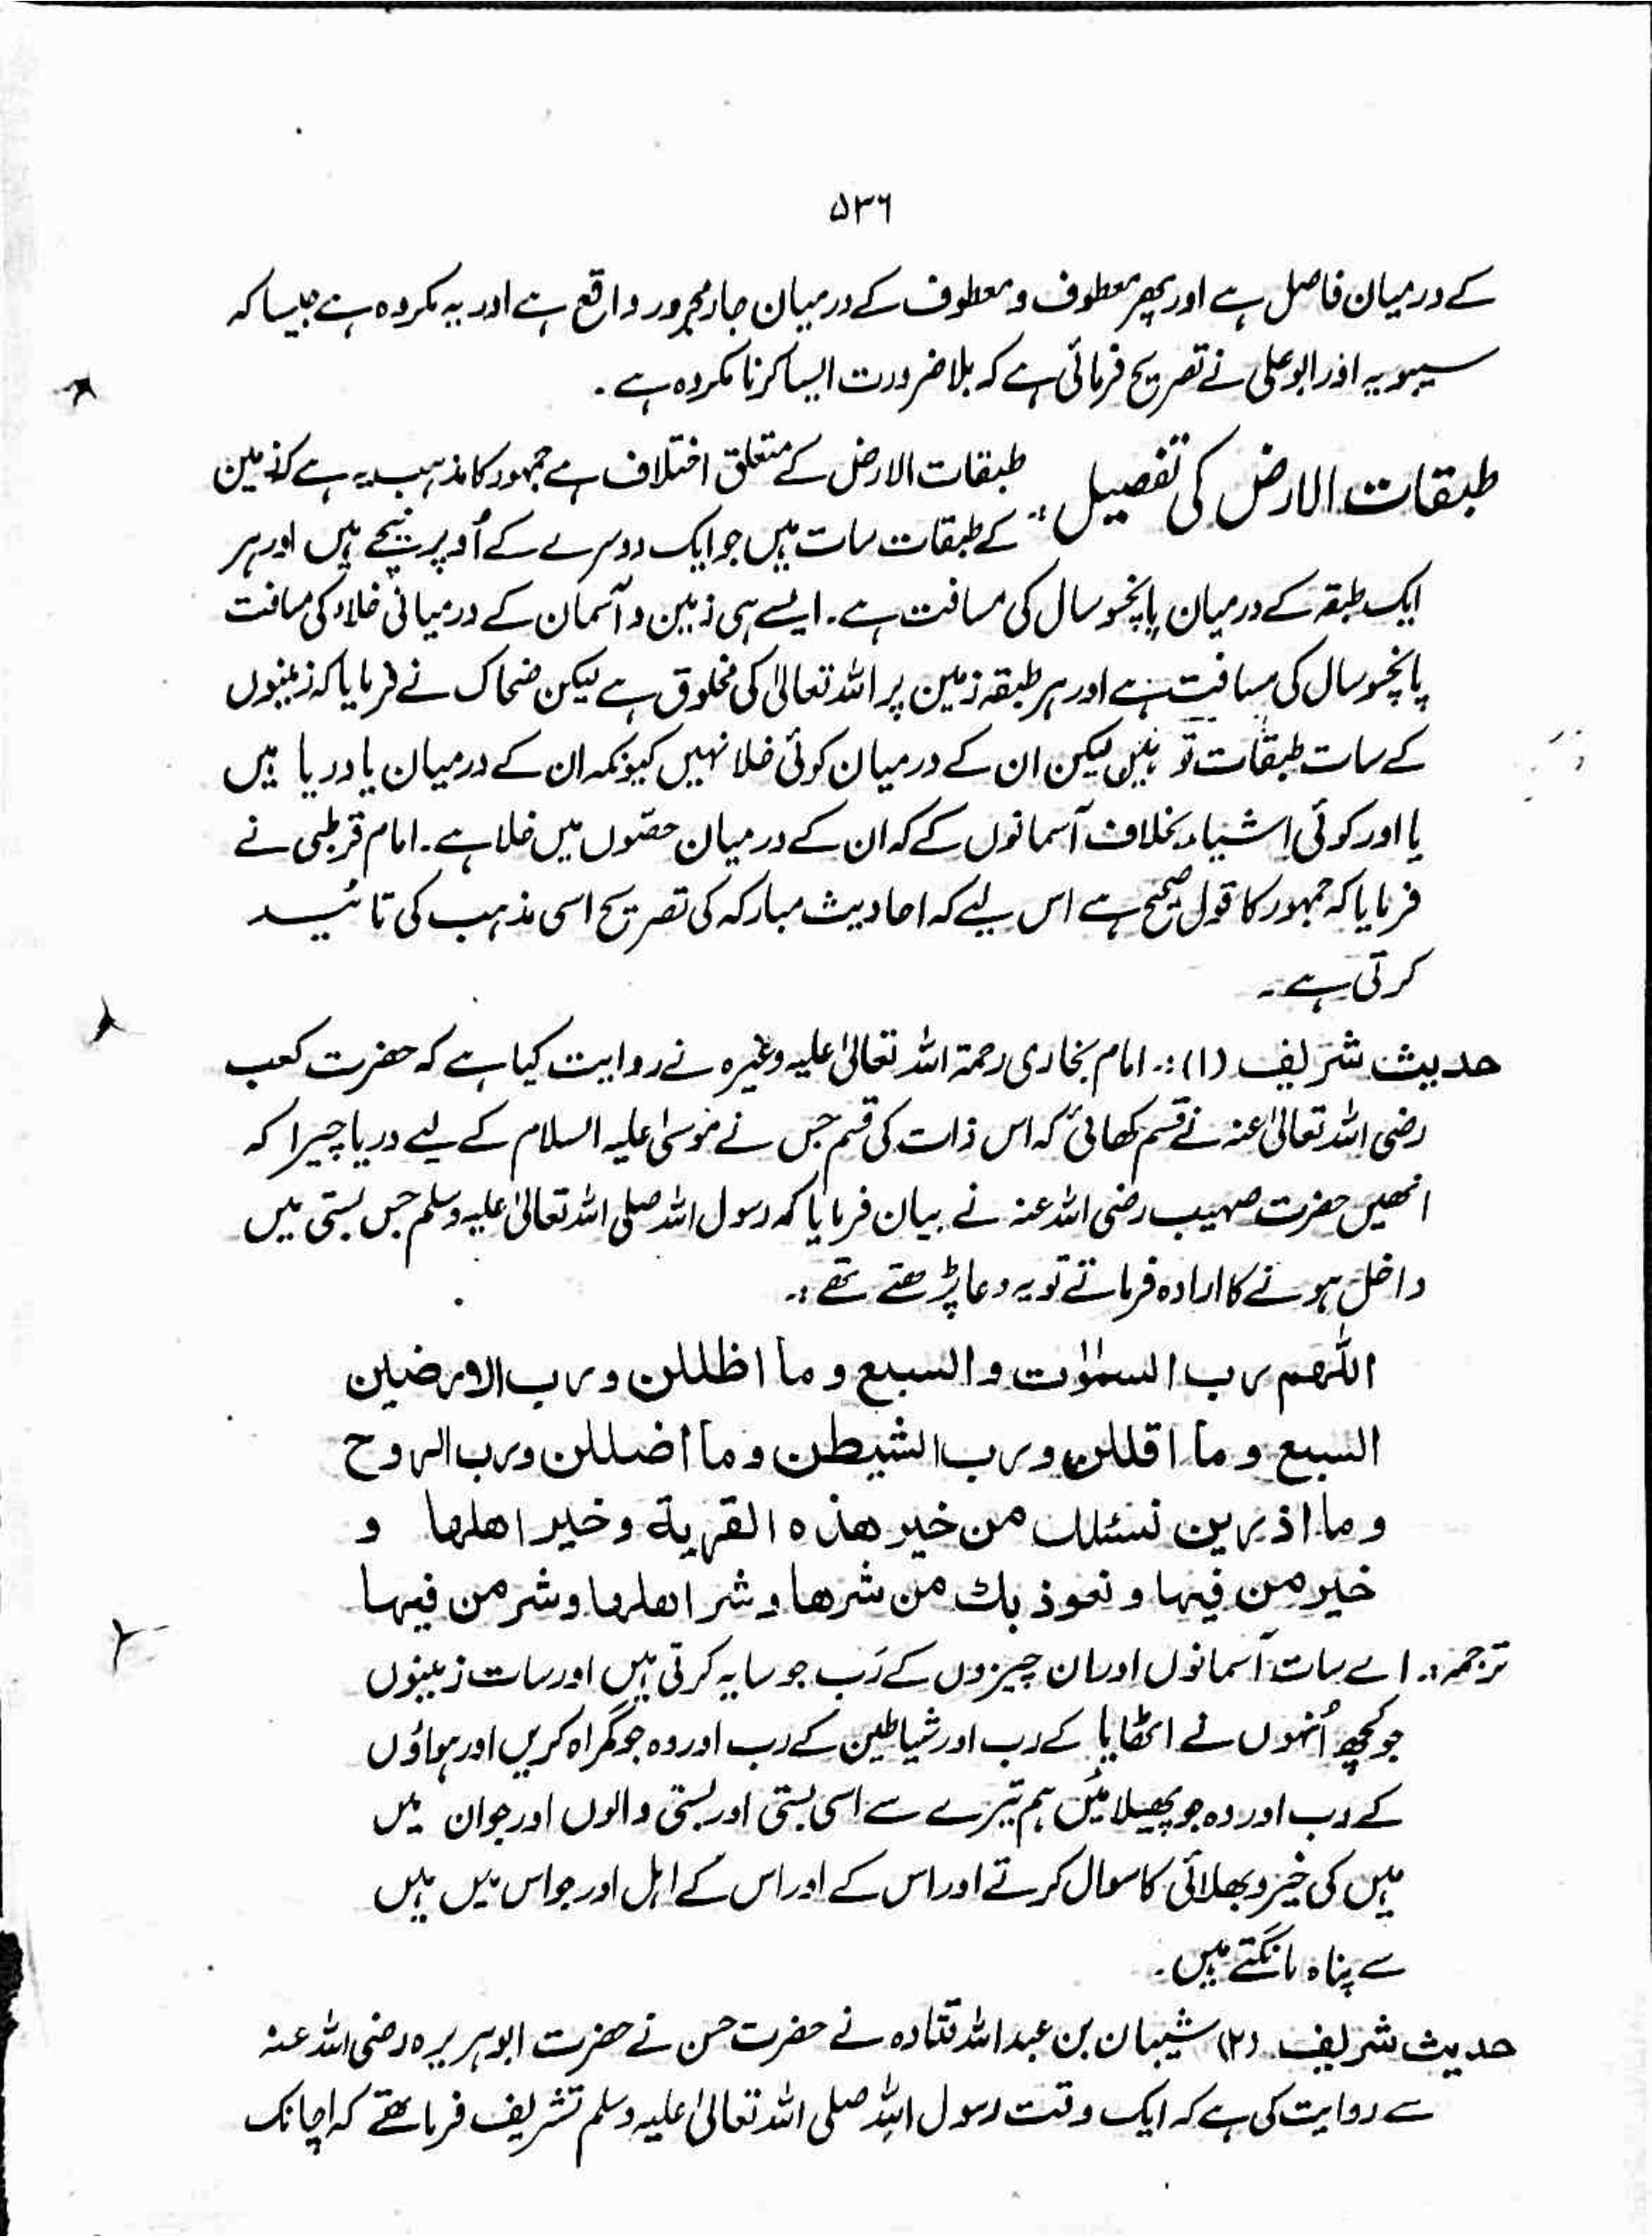 ۵۳۶
کے درمیان فاصل ہے اور پھر معطوف و معطوف کے درمیان جار مجرور واقع ہے اور یہ مکروہ ہے جیسا کہ
سیبویہ اور ابوعلی نے تصریح فرمائی ہے کہ بلا ضرورت ایسا کرنا مکروہ ہے ۔
طبقات الارض کی تفصیل :۔ طبقات الارض کے متعلق اختلاف ہے جمہور کا مذہب یہ ہے کہ زمین
کے طبقات سات ہیں جو ایک دوسرے کے اُوپر نیچے ہیں اور ہر
ایک طبقہ کے درمیان پانچسو سال کی مسافت ہے ۔ ایسے ہی زمین و آسمان کے درمیانی خلاء کی مسافت
پانچسو سال کی مسافت ہے اور ہر طبقہ زمین پر اللہ تعالیٰ کی مخلوق ہے لیکن ضحاک نے فرمایا کہ زمینوں
کے سات طبقات تو ہیں لیکن ان کے درمیان کوئی خلا نہیں کیونکہ ان کے درمیان یا دریا ہیں
یا اور کوئی اشیاء بخلاف آسمانوں کے کہ ان کے درمیان حصّوں میں خلا ہے ۔ امام قرطبی نے
فرمایا کہ جمہور کا قول صحیح ہے اس لیے کہ احادیث مبارکہ کی تصریح اسی مذہب کی تائید
کرتی ہے ۔
حدیث شریف (۱) :۔ امام بخاری رحمۃ اللہ تعالیٰ علیہ وغیرہ نے روایت کیا ہے کہ حضرت کعب
رضی اللہ تعالیٰ عنہ نے قسم کھائی کہ اس ذات کی قسم جس نے موسیٰ علیہ السلام کے لیے دریا چیرا کہ
انھیں حضرت صہیب رضی اللہ عنہ نے بیان فرمایا کہ رسول اللہ صلی اللہ تعالیٰ علیہ وسلم جس بستی میں
داخل ہونے کا ارادہ فرماتے تو یہ دعا پڑھتے تھے :۔
اللّٰھم رب السمٰوٰت والسبع و ما اظللن و رب الارضین
السبع و ما اقللن و رب الشیطن و ما أضللن و رب الروح
و ما اذرین نسئلك من خیر ھذہ القریة و خیر اھلھا و
خیر من فیھا و نعوذ بك من شرھا و شر اھلھا و شر من فیھا
ترجمہ :۔ اے سات آسمانوں اور ان چیزوں کے رَب جو سایہ کرتی ہیں اور سات زمینوں
جو کچھ اُنہوں نے اٹھایا کے رب اور شیاطین کے رب اور وہ جو گمراہ کریں اور ہواؤں
کے رب اور وہ جو پھیلائیں ہم تیرے سے اسی بستی اور بستی والوں اور جو ان میں
ہیں کی خیر و بھلائی کا سوال کرتے اور اس کے اور اس کے اہل اور جو اس میں ہیں
سے پناہ مانگتے ہیں ۔
حدیث شریف (۲) شیبان بن عبد اللہ قتادہ نے حضرت حسن نے حضرت ابوہریرہ رضی اللہ عنہ
سے روایت کی ہے کہ ایک وقت رسول اللہ صلی اللہ تعالیٰ علیہ وسلم تشریف فرما تھے کہ اچانک